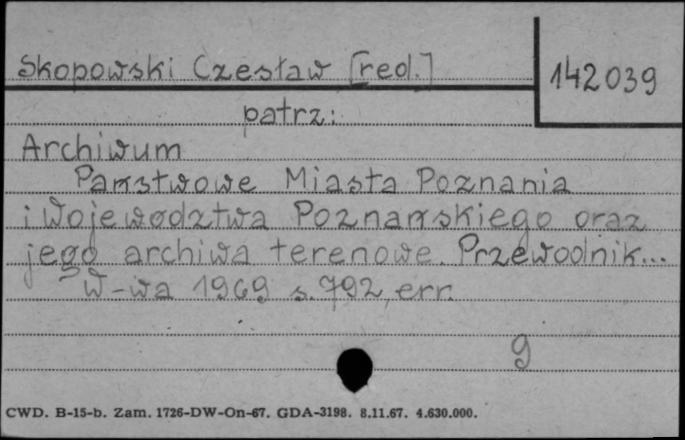 Skopowski Czesław [red.]
142039
patrz:
Archiwum
Państwowe Miasta Poznania
i Województwa Poznańskiego oraz
jego archiwa terenowe. Przewodnik...
W-wa 1969 s. 792, err.
9
CWD. B-15-b. Zam. 1726-DW-On-67. GDA-3198. 8.11.67. 4.630.000.